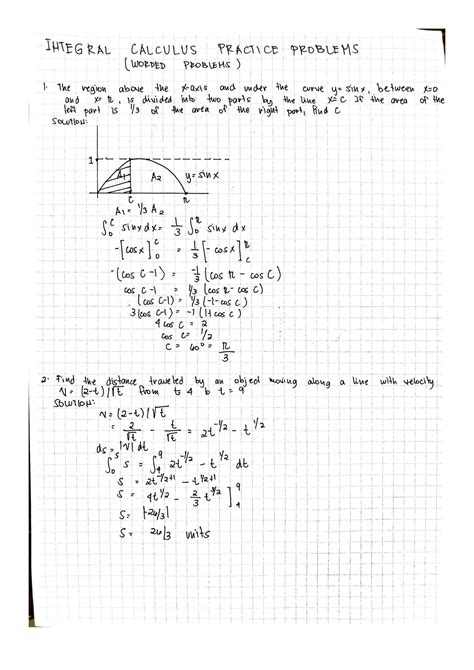 INTEGRAL CALCULUS PRACTICE PROBLEMS
(WORDED PROBLEMS)
1. The region above the x-axis and under the curve y=sinx, between x=0
and x=π, is divided into two parts by the line x=c If the area of the
left part is 1/3 of the area of the right part, find c
SOLUTION:
1
A1 A2 y=sinx
c π
A1 = 1/3 A2
∫₀^c sinx dx = 1/3 ∫₀^π sinx dx
-[cosx]₀^c = 1/3 [-cosx]_c^π
-(cos c -1) = -1/3 (cos π - cos c)
cos c -1 = 1/3 (cos π - cos c)
(cos c-1) = 1/3 (-1-cos c)
3(cos c-1) = -1(1+cos c)
4 cos c = 2
cos c = 1/2
c = 60° = π/3
2. Find the distance traveled by an object moving along a line with velocity
v= (2-t)/√t from t 4 b t = 9
SOLUTION:
v= (2-t)/√t
= 2/√t - t/√t = 2t^-1/2 - t^1/2
ds = |v| dt
∫₀^s s = ∫₄^9 2t^-1/2 - t^1/2 dt
s = 2t^-1/2+1 - t^1/2+1
s = 4t^1/2 - 2/3 t^3/2 ]₄^9
s = |-26/3|
s = 26/3 units